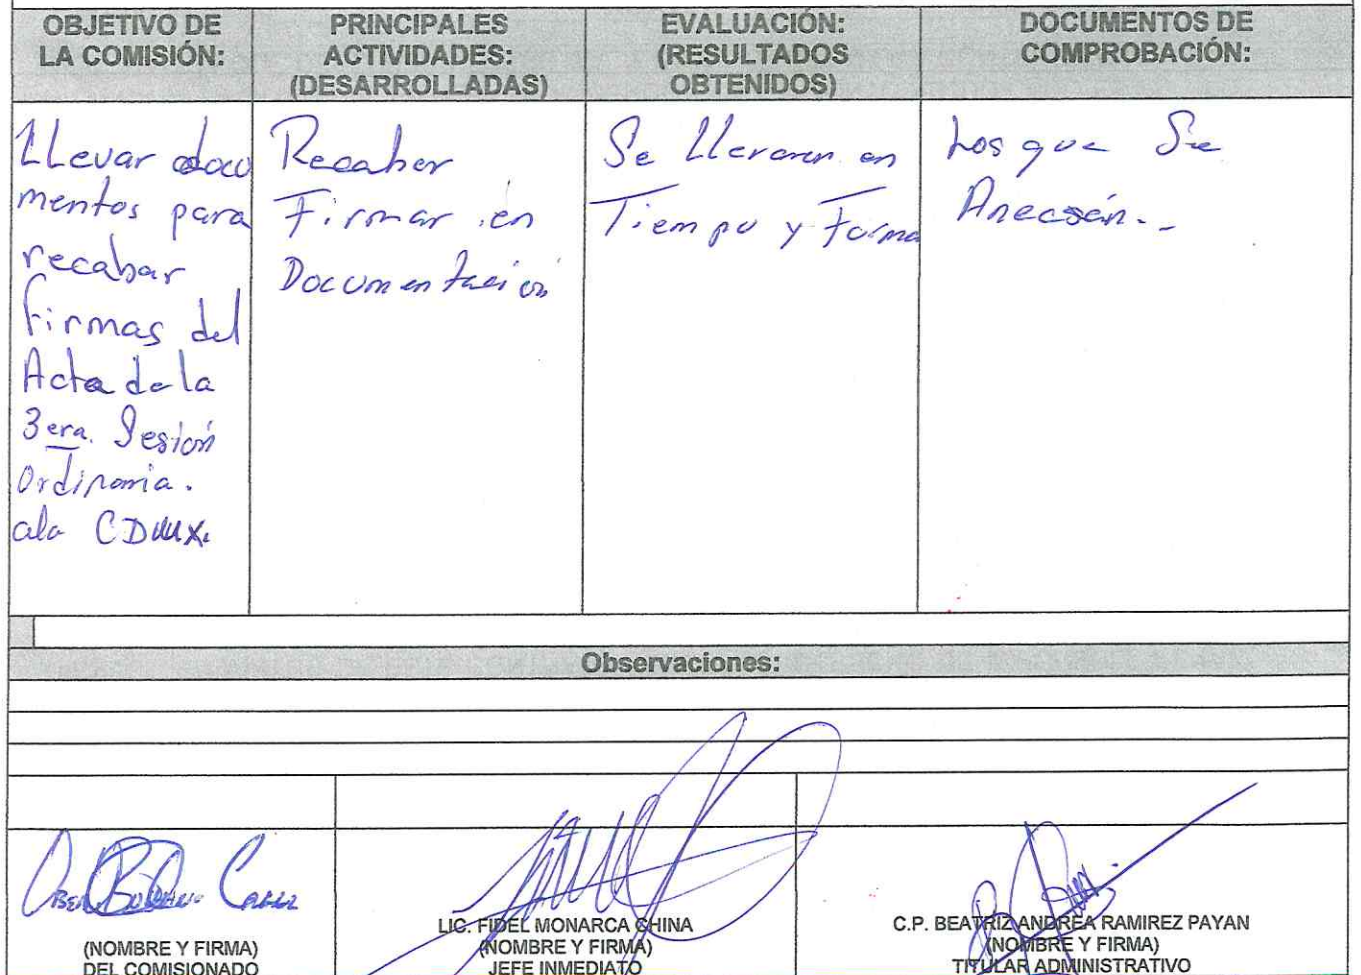 OBJETIVO DE
LA COMISIÓN:
PRINCIPALES
ACTIVIDADES:
(DESARROLLADAS)
EVALUACIÓN:
(RESULTADOS
OBTENIDOS)
DOCUMENTOS DE
COMPROBACIÓN:
Llevar docu
mentos para
recabar
firmas del
Acta de la
3era. Sesión
Ordinaria.
ala CDMX.
Recabar
Firmar en
Documentación
Se Llevaron en
Tiempo y Forma
Los que Se
Anecsán.-
Observaciones:
(NOMBRE Y FIRMA)
DEL COMISIONADO
LIC. FIDEL MONARCA CHINA
(NOMBRE Y FIRMA)
JEFE INMEDIATO
C.P. BEATRIZ ANDREA RAMIREZ PAYAN
(NOMBRE Y FIRMA)
TITULAR ADMINISTRATIVO